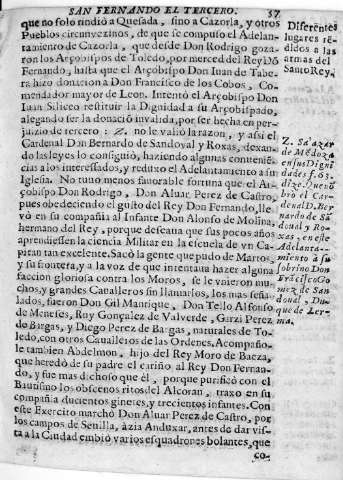 SAN FERNANDO EL TERCERO. 57
que no solo rindiò a Quesada, sino a Cazorla, y otros
Pueblos circunvezinos, de que se compuso el Adelan-
tamiento de Cazorla, que desde Don Rodrigo goza-
ron los Arçobispos de Toledo, por merced del Rey Dõ
Fernando, hasta que el Arçobispo Don Iuan de Tabe-
ra hizo donacion a Don Francisco de los Cobos, Co-
mendador mayor de Leon. Intentò el Arçobispo Don
Iuan Siliceo restituir la Dignidad a su Arçobispado,
alegando ser la donacion invalida, por ser hecha en per-
juizio de tercero: Z. no le valiò la razon, y assi el
Cardenal Don Bernardo de Sandoval y Roxas, dexan-
do las leyes lo consiguiò, haziendo algunas convenié-
cias a los interessados, y reduxo el Adelantamiento a su
Iglesia. No tuvo menos favorable fortuna que el Ar-
çobispo Don Rodrigo, Don Aluar Perez de Castro,
pues obedeciendo el gusto del Rey Don Fernando, lle-
vò en su compañia al Infante Don Alonso de Molina,
hermano del Rey, porque deseava que sus pocos años
aprendiessen la ciencia Militar en la escuela de vn Ca-
pitan tan excelente. Sacò la gente que pudo de Martos,
y su frontera, y a la voz de que intentava hazer alguna
faccion gloriosa contra los Moros, se le vnieron mu-
chos, y grandes Cavalleros sin llamarlos, los mas seña-
lados, fueron Don Gil Manrique, Don Tello Alfonso
de Meneses, Ruy Gonçalez de Valverde, Garzi Perez
de Bargas, y Diego Perez de Bargas, naturales de To-
ledo, con otros Cavalleros de las Ordenes. Acompaño-
le tambien Abdelmon, hijo del Rey Moro de Baeza,
que heredò de su padre el cariño al Rey Don Fernan-
do, y fue mas dichoso que èl, porque purificò con el
Bautismo los obscenos ritos del Alcoran, traxo en su
compañia ducientos ginetes, y trecientos infantes. Con
este Exercito marchò Don Aluar Perez de Castro, por
los campos de Seuilla, àzia Anduxar, antes de dar vis-
ta a la Ciudad embiò varios esquadrones bolantes, que
co-
Diferentes
lugares rē-
didos a las
armas del
Santo Rey.
Z. Salazar
de Mēdoza
en sus Dieni
dades f. 63.
dize. Quevo
briò el Car-
denal D. Ber
nardo de Sā
doual y Ro-
xas, en este
Adelanta-
miento à su
sobrino Don
Frācisco Go
mez de San
doual, Du-
que de Ler-
ma.